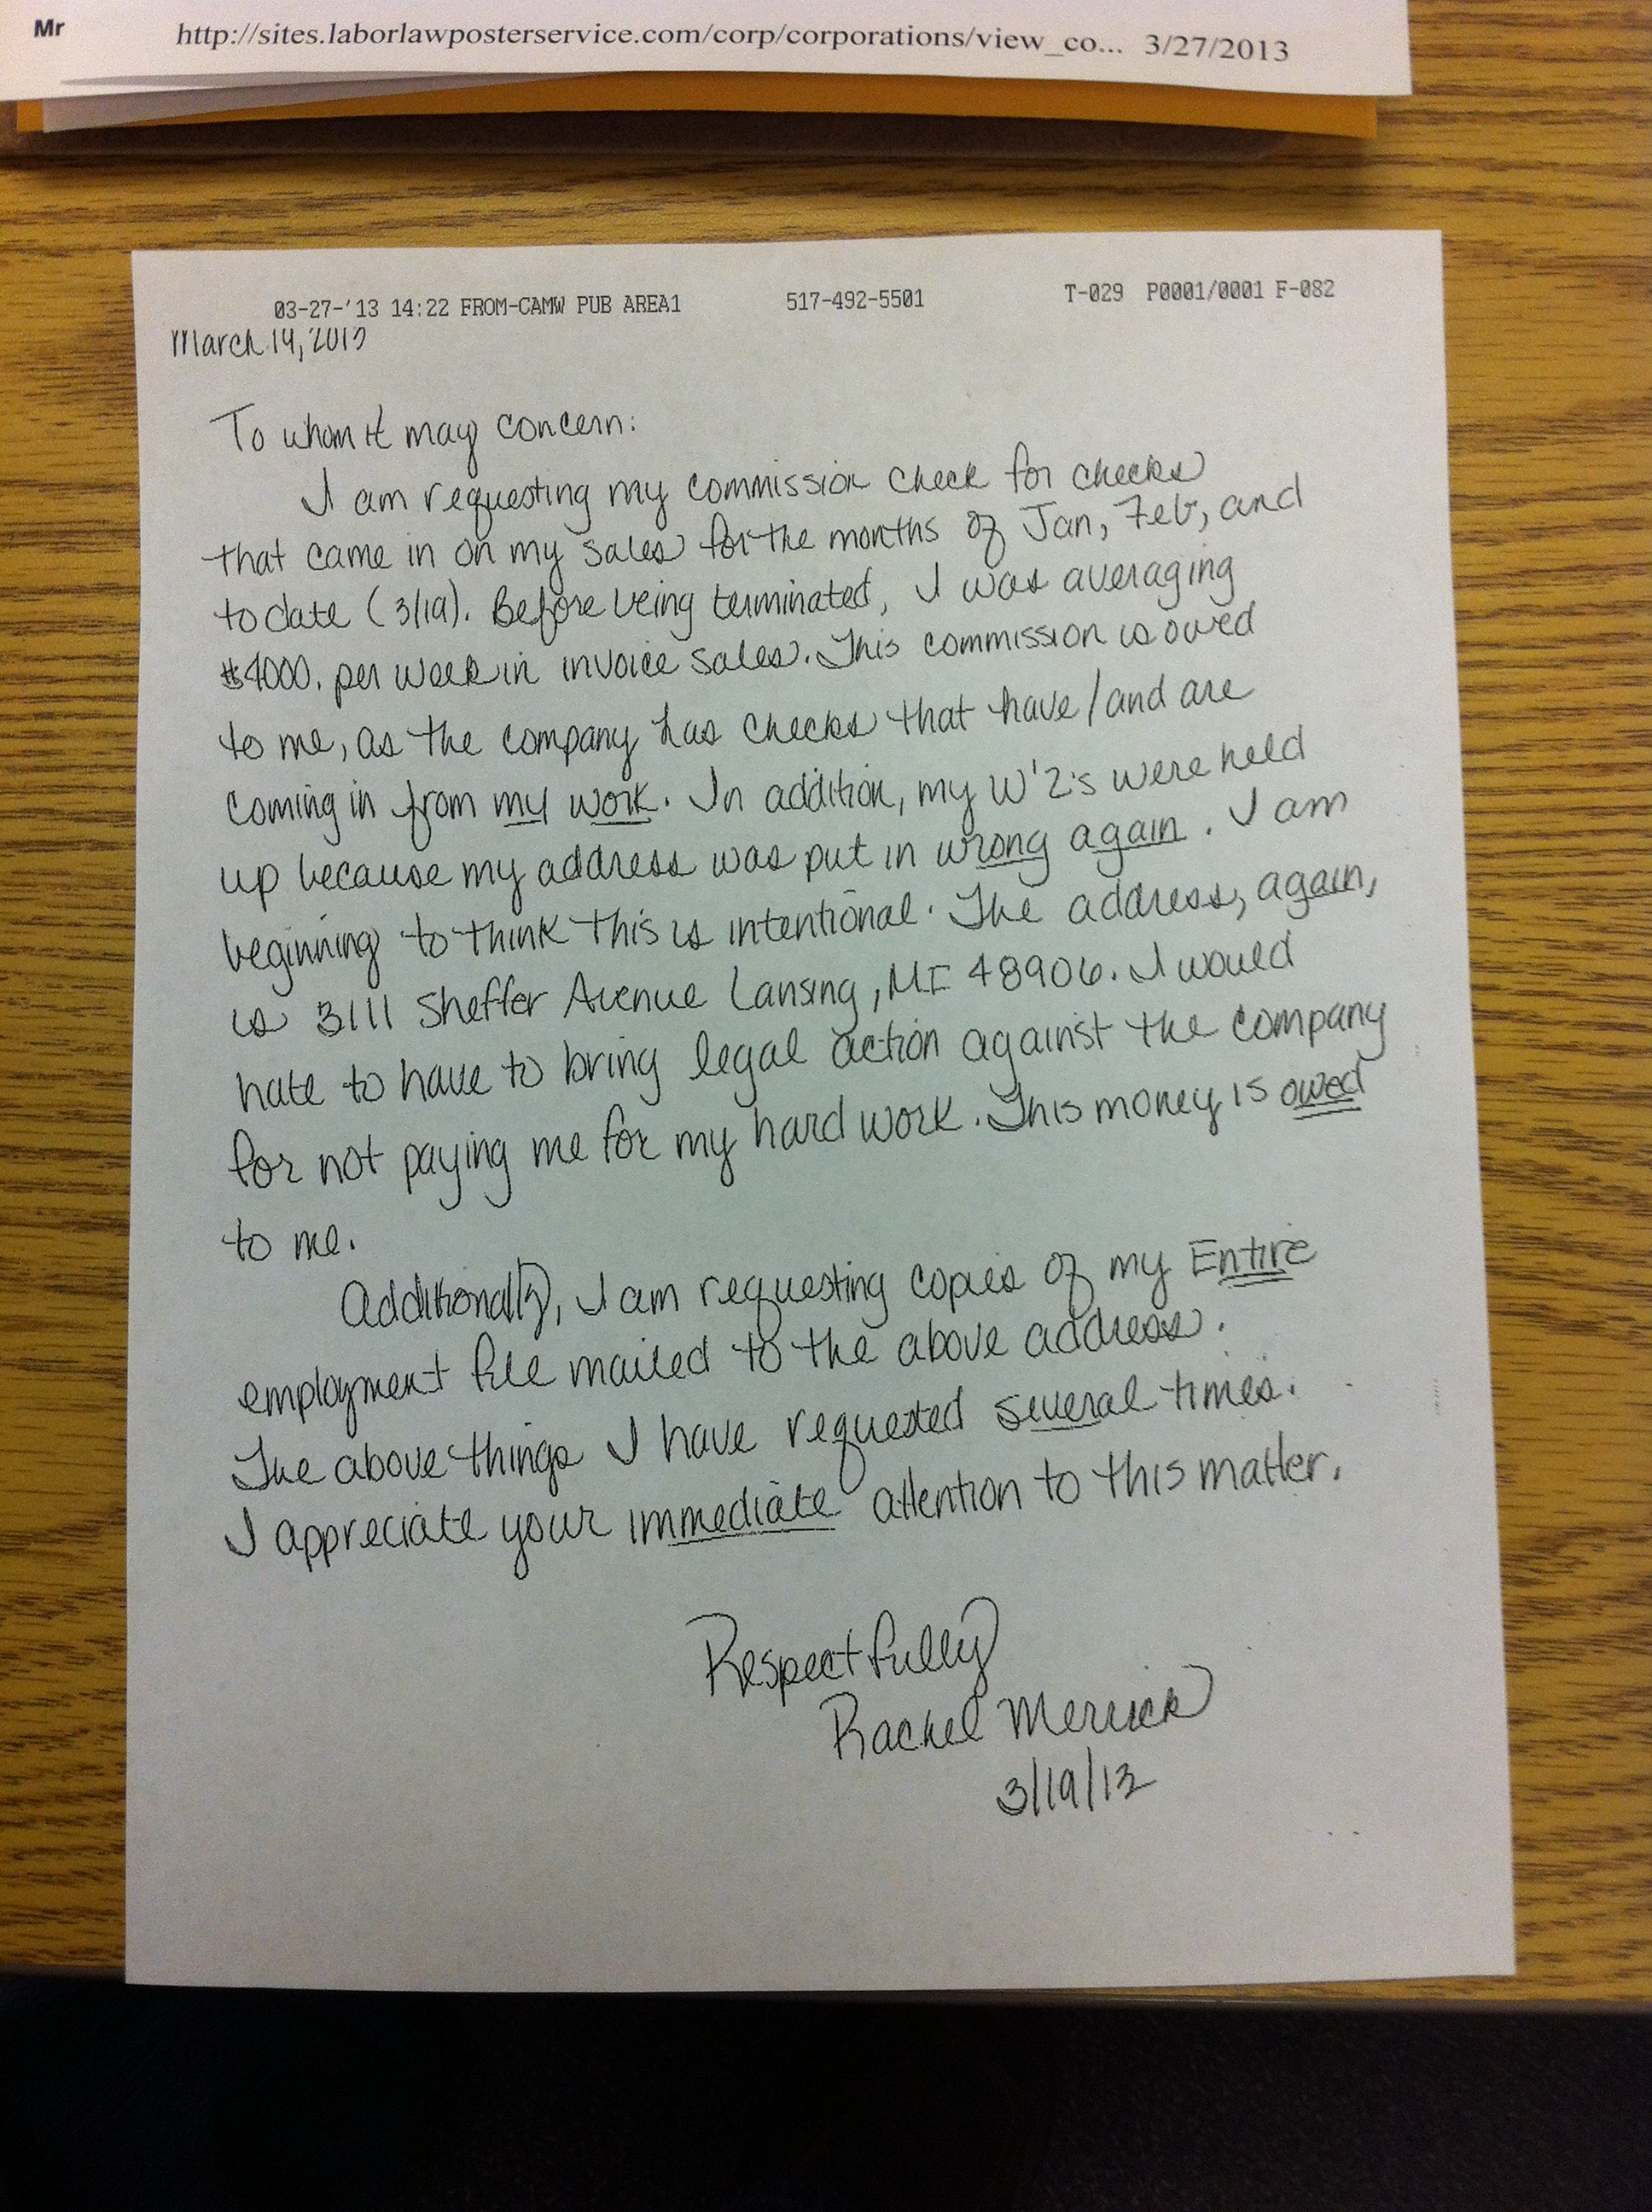 Mr http://sites.laborlawposterservice.com/corp/corporations/view_co... 3/27/2013
03-27-'13 14:22 FROM-CAMW PUB AREA1 517-492-5501 T-029 P0001/0001 F-082
March 19, 2013
To whom it may concern:
I am requesting my commission check for checks
that came in on my sales for the months of Jan, Feb, and
to date (3/19). Before being terminated, I was averaging
$4000. per week in invoice sales. This commission is owed
to me, as the company has checks that have/and are
coming in from my work. In addition, my W'2's were held
up because my address was put in wrong again. I am
beginning to think this is intentional. The address, again,
is 3111 Sheffer Avenue Lansing, MI 48906. I would
hate to have to bring legal action against the company
for not paying me for my hard work. This money is owed
to me.
Additionally, I am requesting copies of my Entire
employment file mailed to the above address.
The above things I have requested several times.
I appreciate your immediate attention to this matter.
Respectfully
Rachel Merrick
3/19/13